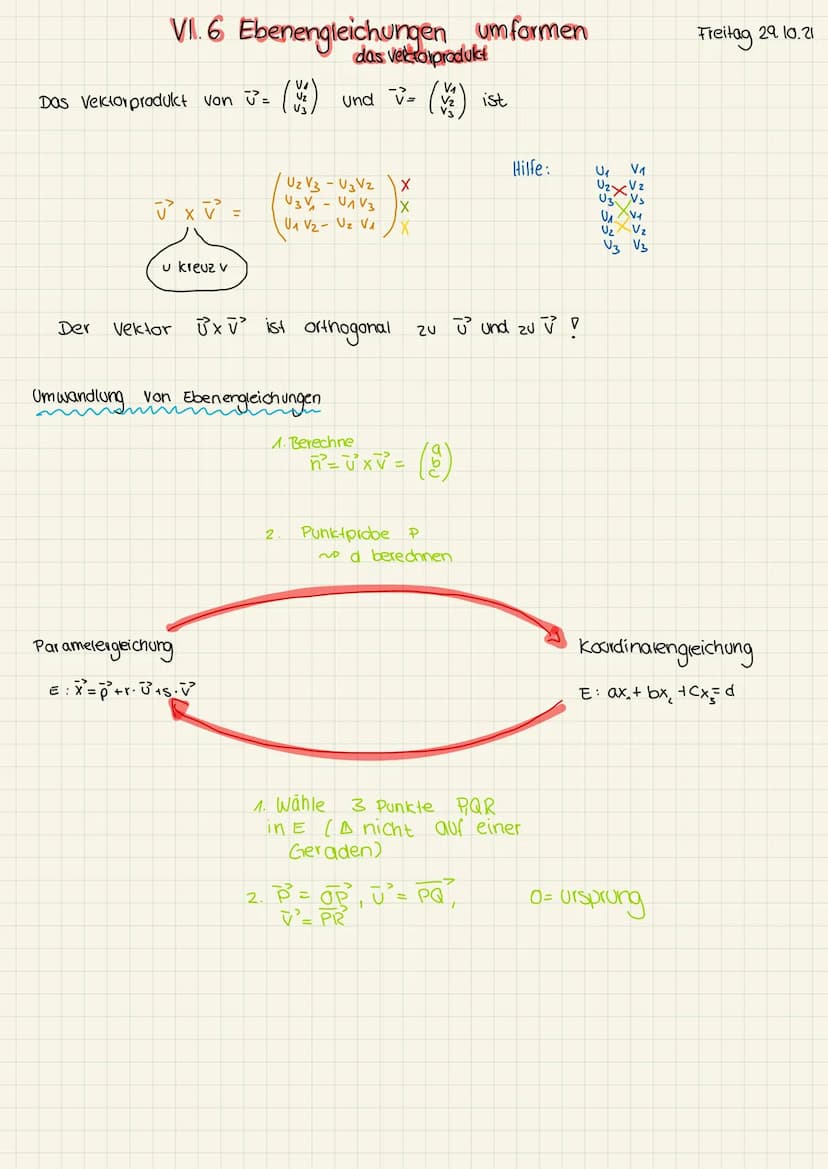 VI.6 Ebenengleichungen umformen
das Vektorprodukt
Freitag 29.10.21
Das Vektorprodukt von u⃗ = (u₁ u₂ u₃) und v⃗ = (v₁ v₂ v₃) ist
Hilfe:
u₁ v₁
u₂ x v₂
u₃ v₃
u₁ x v₁
u₂ x v₂
u₃ v₃
u⃗ x v⃗ =
u₂v₃ - u₃v₂ x
u₃v₁ - u₁v₃ x
u₁v₂ - u₂v₁ x
u kreuz v
Der Vektor u⃗ x v⃗ ist orthogonal zu u⃗ und zu v⃗ !
Umwandlung von Ebenengleichungen
1. Berechne
n⃗ = u⃗ x v⃗ = (a b c)
2. Punktprobe P
~> d berechnen
Parametergleichung
Koordinatengleichung
E: x⃗ = p⃗ + r · u⃗ + s · v⃗
E: ax₁ + bx₂ + cx₃ = d
1. Wähle 3 Punkte P,Q,R
in E (Δ nicht auf einer
Geraden)
2. p⃗ = OP⃗, u⃗ = PQ⃗,
v⃗ = PR⃗
O = Ursprung